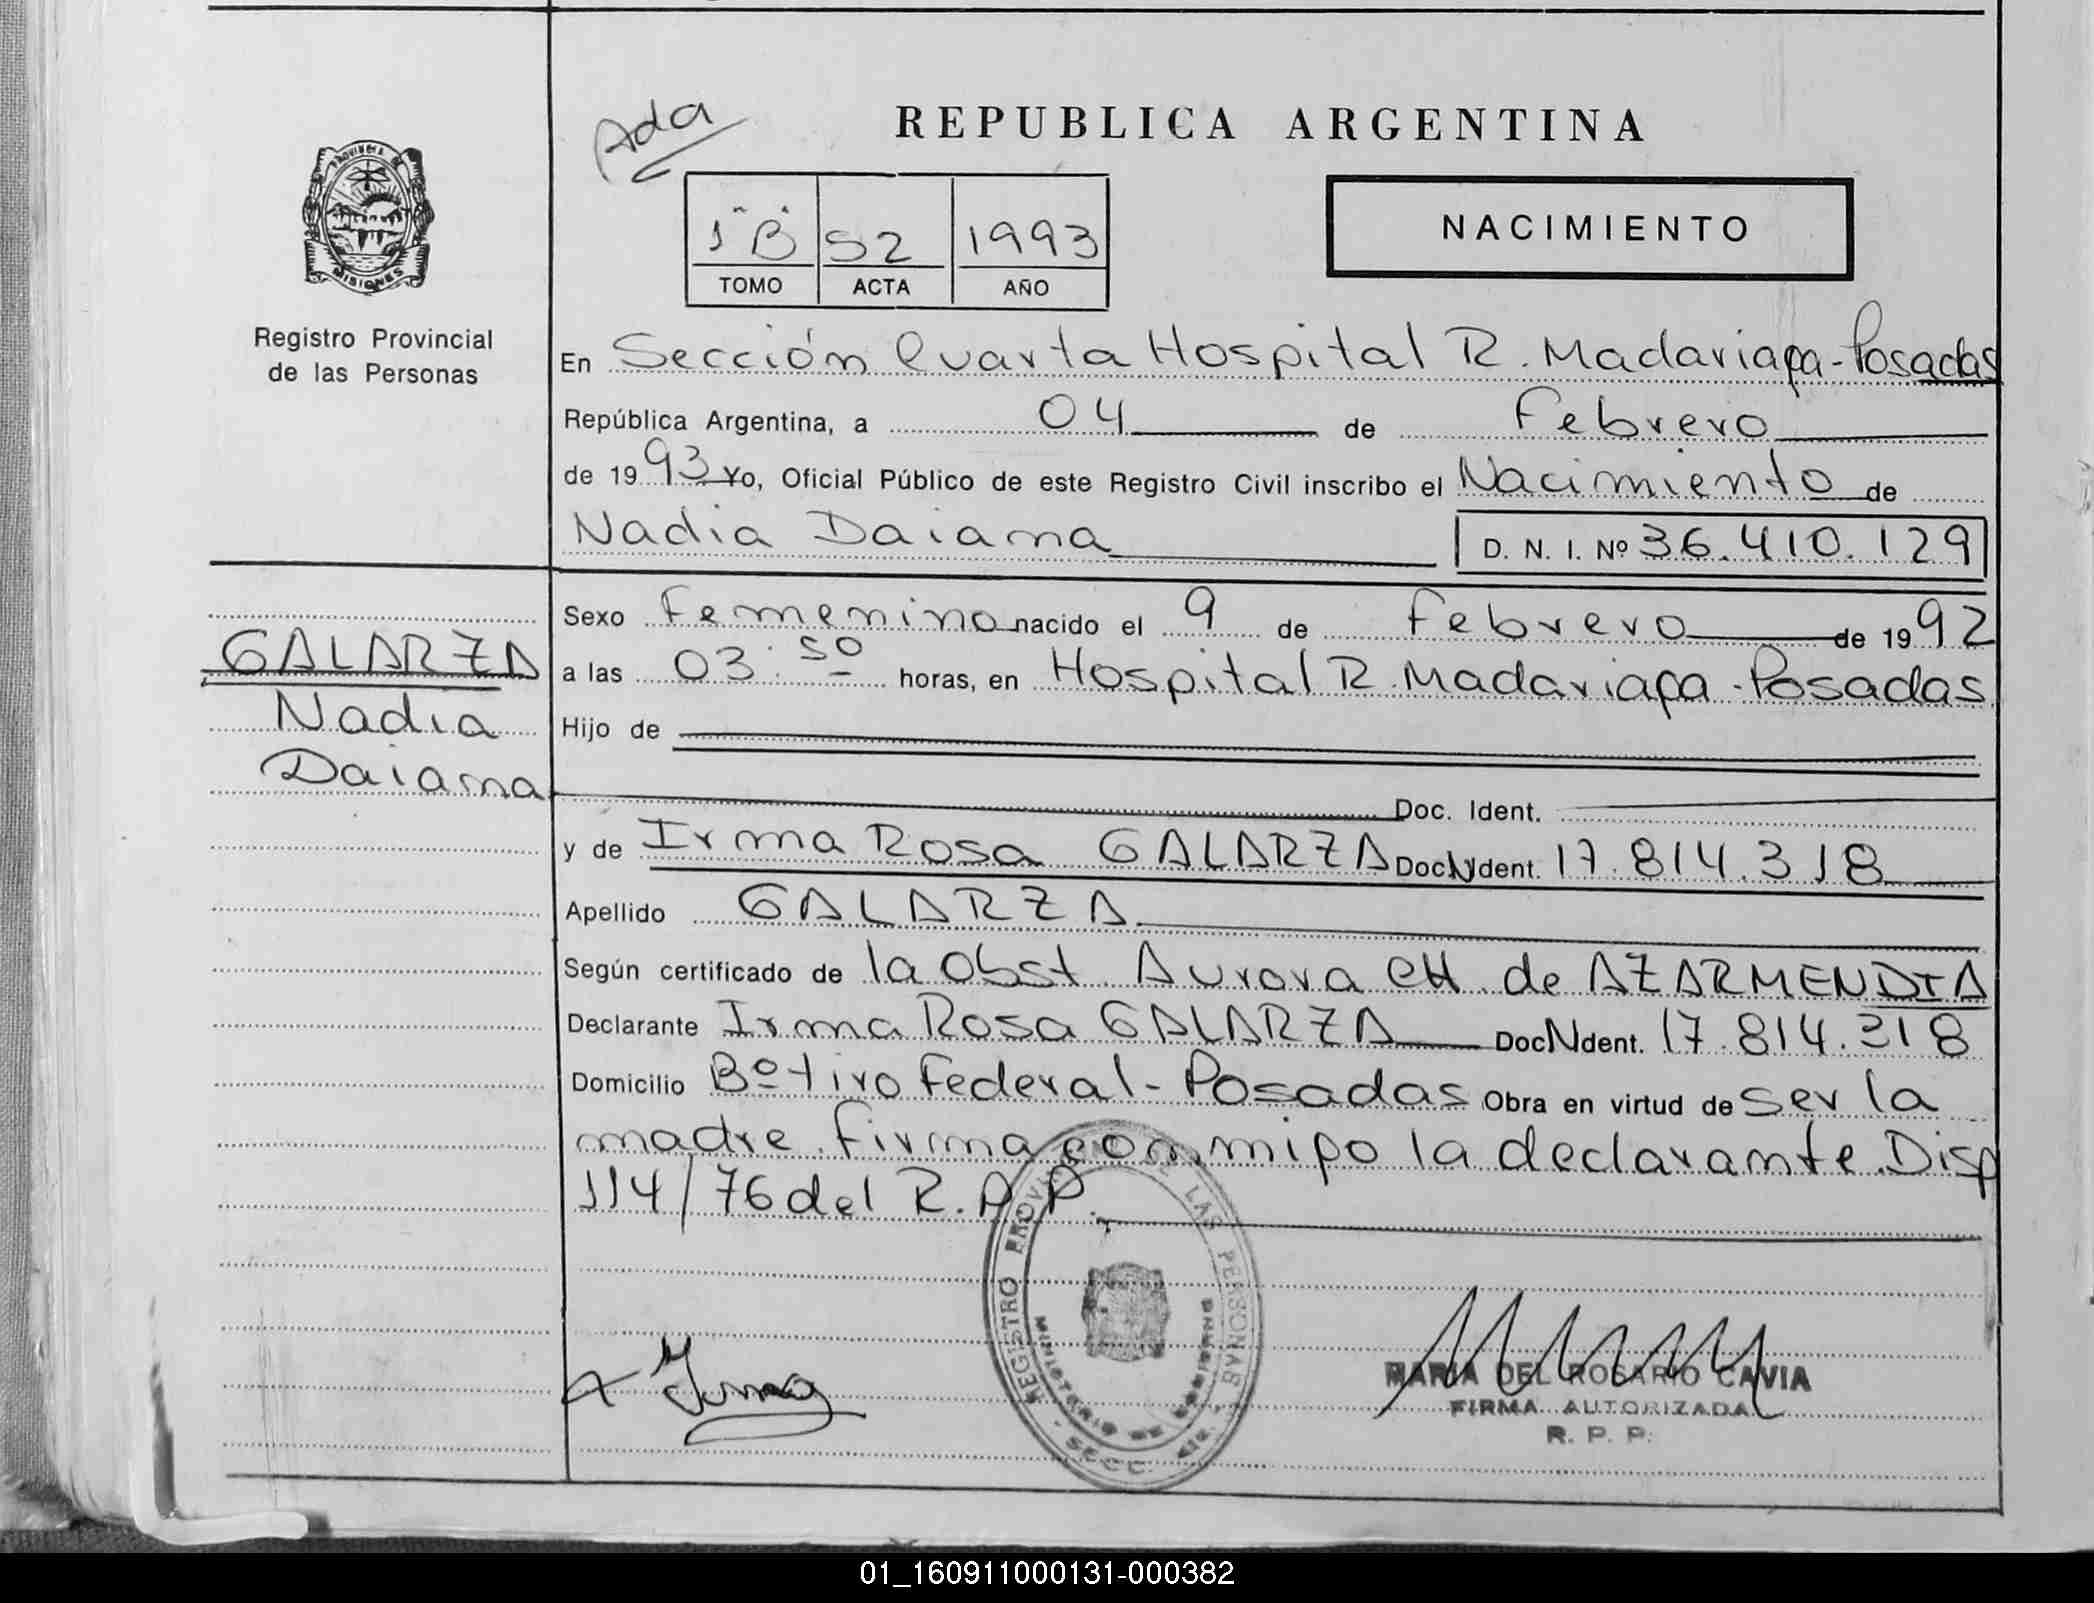 Ada
REPUBLICA ARGENTINA
PROVINCIA DE
MISIONES
1 "B" 52 1993
TOMO ACTA AÑO
NACIMIENTO
Registro Provincial
de las Personas
En Sección Cuarta Hospital R. Madariaga - Posadas
República Argentina, a 04 de Febrero
de 1993 Yo, Oficial Público de este Registro Civil inscribo el Nacimiento de
Nadia Daiana D. N. I. Nº 36.410.129
GALARZA
Nadia
Daiana
Sexo Femenino nacido el 9 de Febrero de 1992
a las 03:50 horas, en Hospital R. Madariaga - Posadas
Hijo de
Doc. Ident.
y de Irma Rosa GALARZA Doc. Ident. 17.814.318
Apellido GALARZA
Según certificado de la Obst. Aurora CH. de AZARMENDIA
Declarante Irma Rosa GALARZA Doc. Ident. 17.814.318
Domicilio Bº tiro Federal - Posadas Obra en virtud de ser la
madre. Firma conmigo la declarante. Disp
114/76 del R.P.P.
REGISTRO PROVINCIAL DE LAS PERSONAS
MINISTERIO DE GOBIERNO
SECC. 4ta.
Irma
MARIA DEL ROSARIO CAVIA
FIRMA AUTORIZADA
R. P. P.
01_160911000131-000382